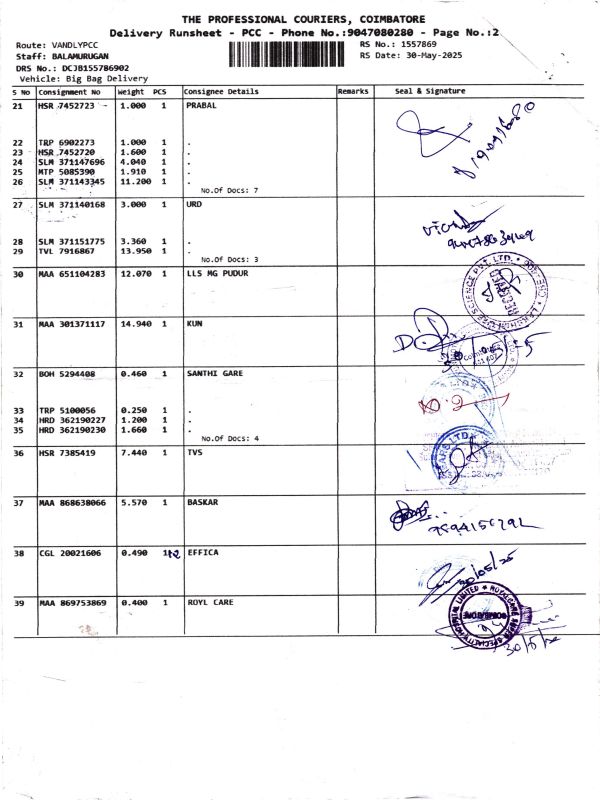 THE PROFESSIONAL COURIERS, COIMBATORE
Delivery Runsheet - PCC - Phone No.:9047080280 - Page No.:2
Route: VANDLYPCC
RS No.: 1557869
Staff: BALAMURUGAN
RS Date: 30-May-2025
DRS No.: DCJB155786902
Vehicle: Big Bag Delivery
S No Consignment No Weight PCS Consignee Details Remarks Seal & Signature
21 HSR 7452723 1.000 1 PRABAL
22 TRP 6902273 1.000 1 .
23 HSR 7452720 1.600 1 .
24 SLM 371147696 4.040 1 .
25 MTP 5085390 1.910 1 .
26 SLM 371143345 11.200 1 .
No.Of Docs: 7
27 SLM 371140168 3.000 1 URD
28 SLM 371151775 3.360 1 .
29 TVL 7916867 13.950 1 .
No.Of Docs: 3
30 MAA 651104283 12.070 1 LLS MG PUDUR
RECEIVED
31 MAA 301371117 14.940 1 KUN
32 BOH 5294408 0.460 1 SANTHI GARE
33 TRP 5100056 0.250 1 .
34 HRD 362190227 1.200 1 .
35 HRD 362190230 1.660 1 .
No.Of Docs: 4
36 HSR 7385419 7.440 1 TVS
37 MAA 868638066 5.570 1 BASKAR
38 CGL 20021606 0.490 1 EFFICA
30/05/25
39 MAA 869753869 0.400 1 ROYL CARE